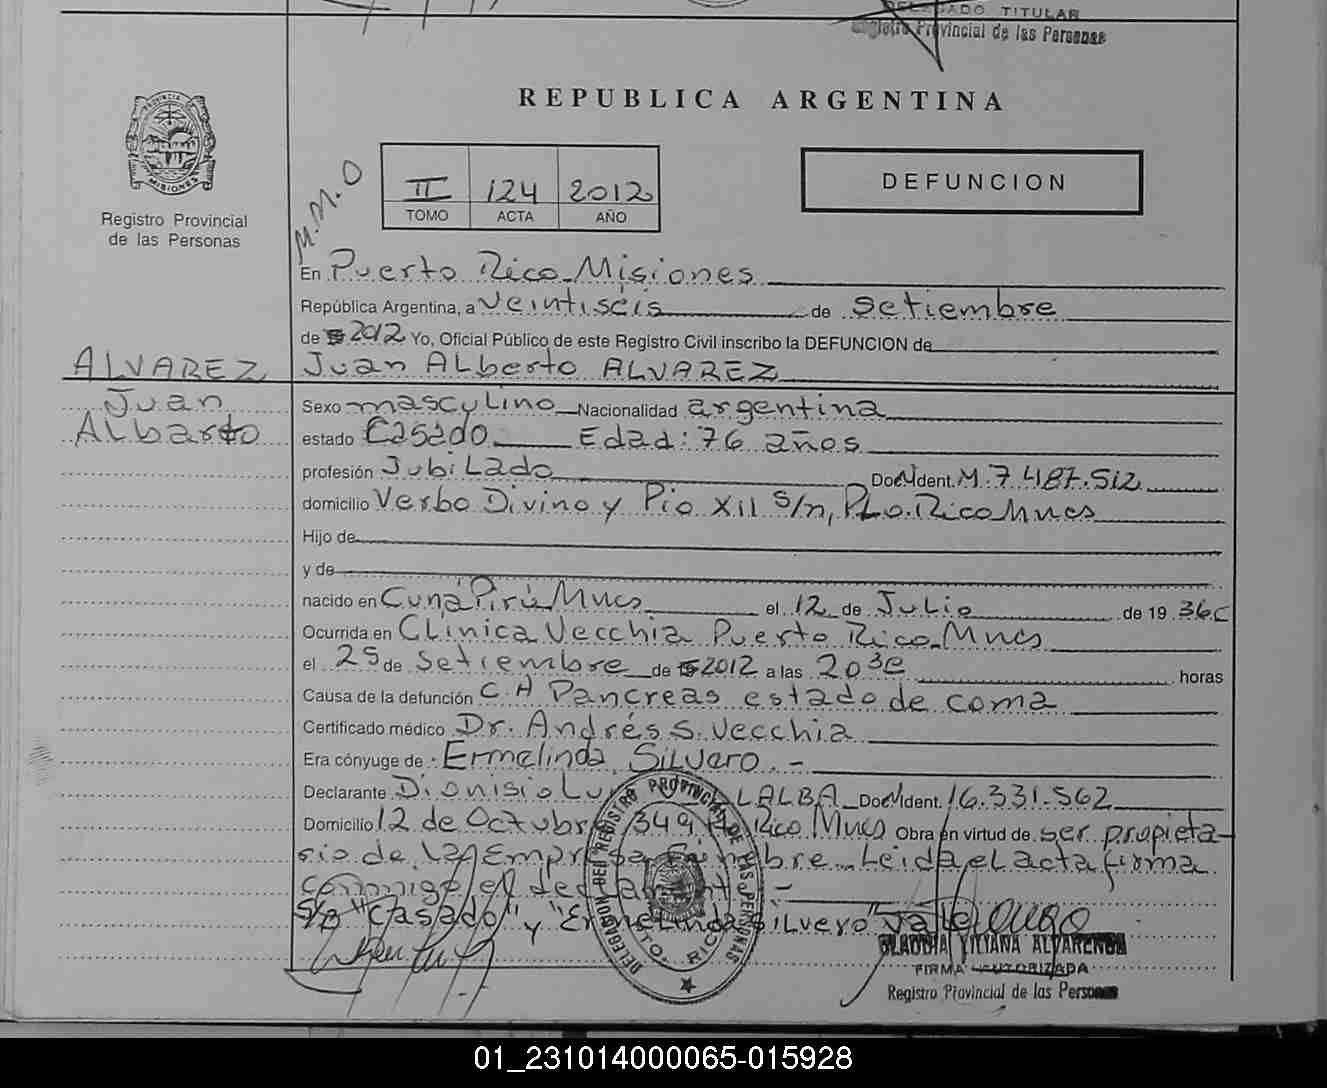 DELEGADO TITULAR
Registro Provincial de las Personas
REPUBLICA ARGENTINA
PROVINCIA DE
MISIONES
Registro Provincial
de las Personas
M.M.O
II 124 2012
TOMO ACTA AÑO
DEFUNCION
En Puerto Rico Misiones
República Argentina, a veintiséis de setiembre
de 2012 Yo, Oficial Público de este Registro Civil inscribo la DEFUNCION de
ALVAREZ Juan ALberto ALVAREZ
Juan Sexo masculino Nacionalidad argentina
ALbarto estado Casado Edad: 76 años
profesión JubiLado Doc. Ident. M. 7.487.512
domicilio Verbo Divino y Pío XII s/n, Pto. Rico Mnes
Hijo de
y de
nacido en Cuñá Pirú Mnes el 12 de JuLio de 19 36
Ocurrida en CLínica Vecchia Puerto Rico Mnes
el 25 de setiembre de 2012 a las 20 30 horas
Causa de la defunción C.A Pancreas estado de coma
Certificado médico Dr. Andrés S. Vecchia
Era cónyuge de Ermelinda SiLvero.-
Declarante Dionisio LALBA Doc. Ident. 16.331.562
Domicilio 12 de Octubre 349 Rico Mnes Obra en virtud de ser propieta-
rio de La Empresa Fúnebre. Leida el acta firma
conmigo el declarante.-
S/B "Casado" y "Ermelinda SiLvero" vale
CLAUDIA VIVIANA ALVARENGA
FIRMA AUTORIZADA
Registro Provincial de las Personas
DELEGACION DEL REGISTRO PROVINCIAL DE LAS PERSONAS
PTO. RICO
01_231014000065-015928